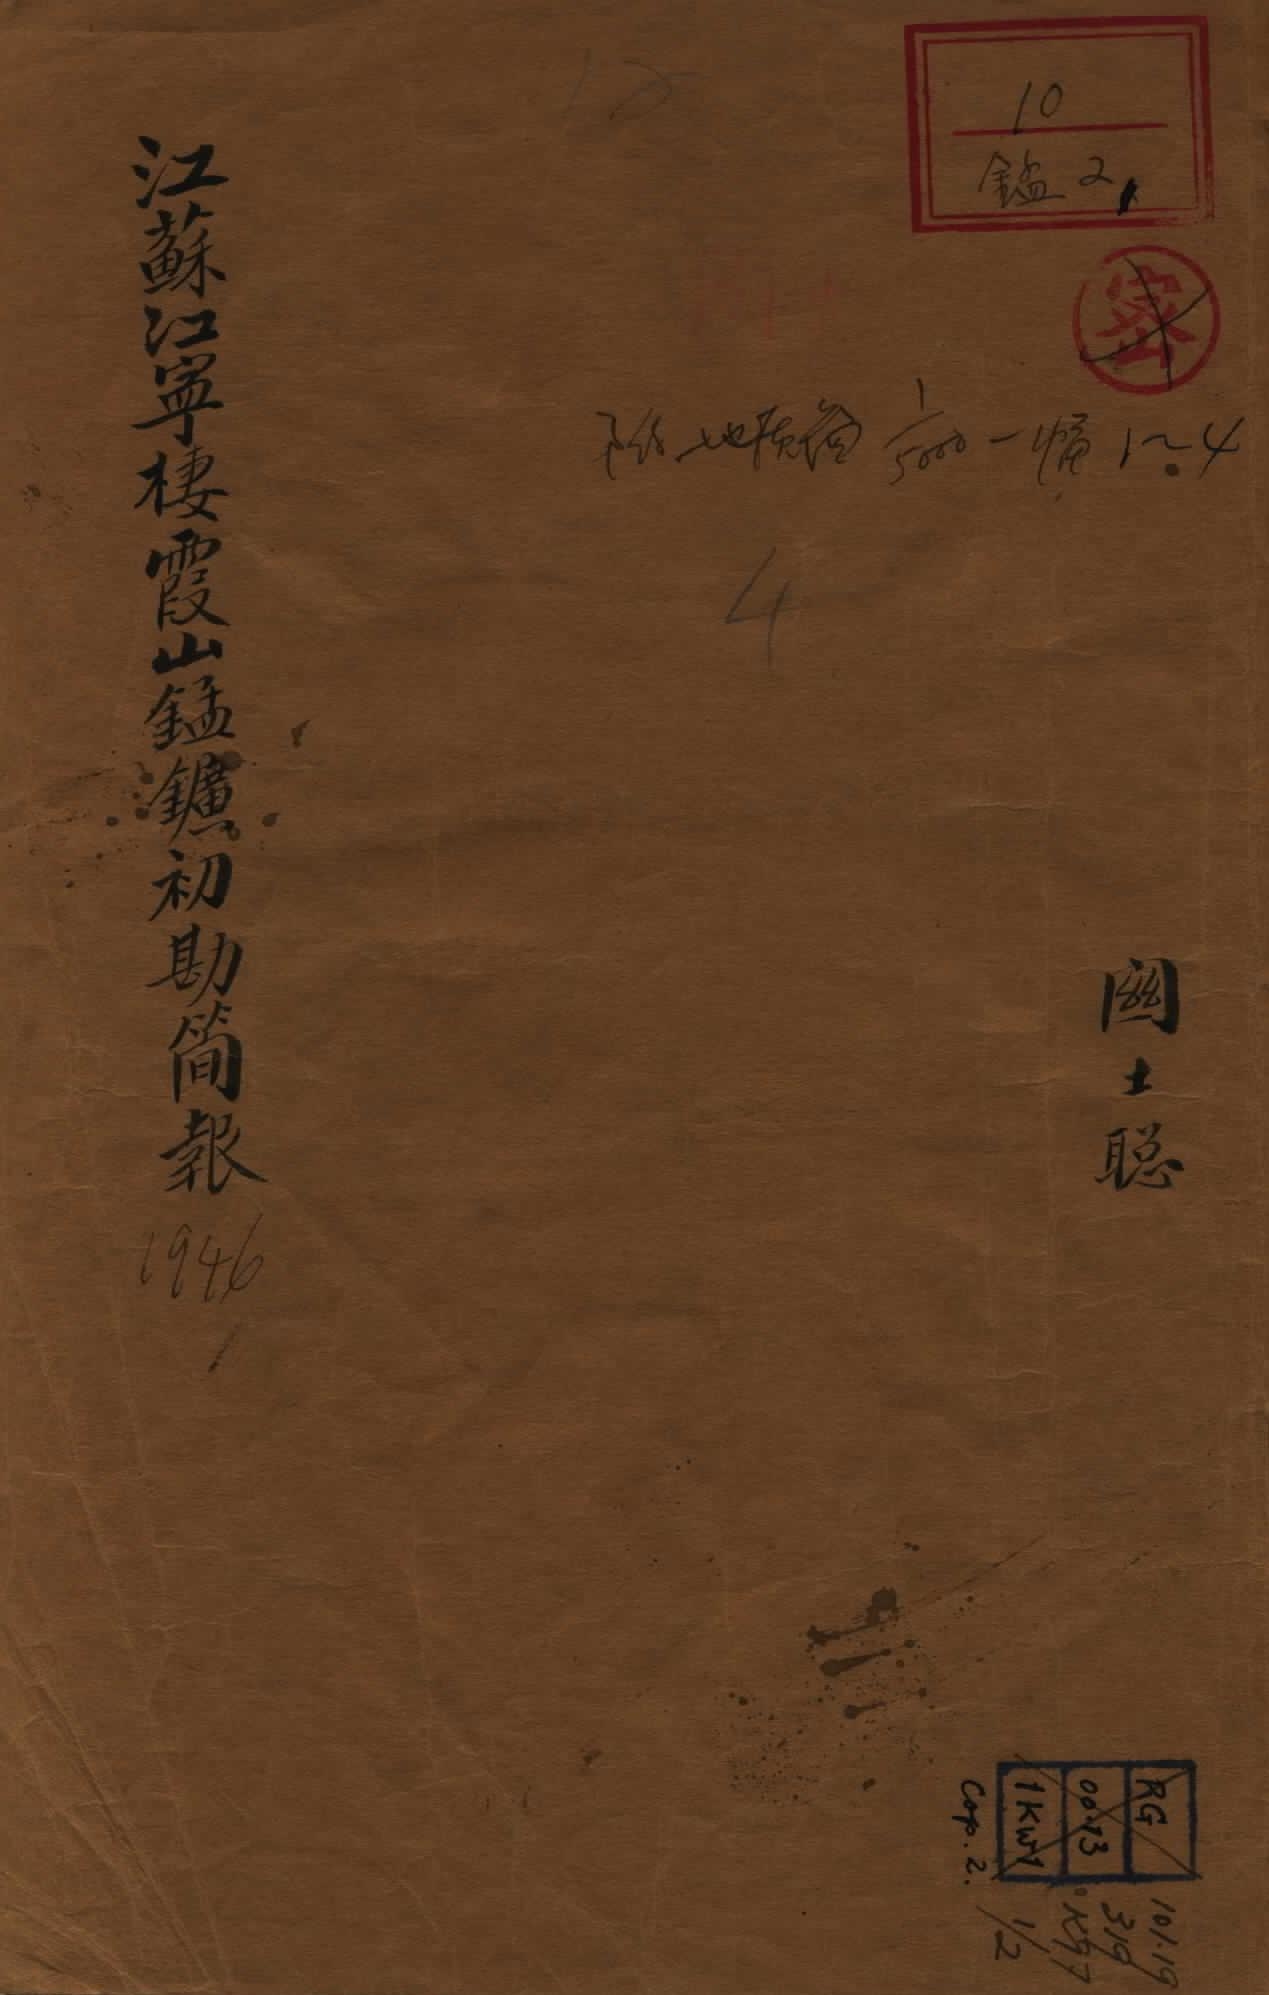 10
錳 2
密
附 地质图 1/5000 一幅 1~4
4
江蘇江寧棲霞山錳鑛初勘簡報
1946
關士聪
RG
00.13
1KW1
Cop. 2.
101.19
319
1/2